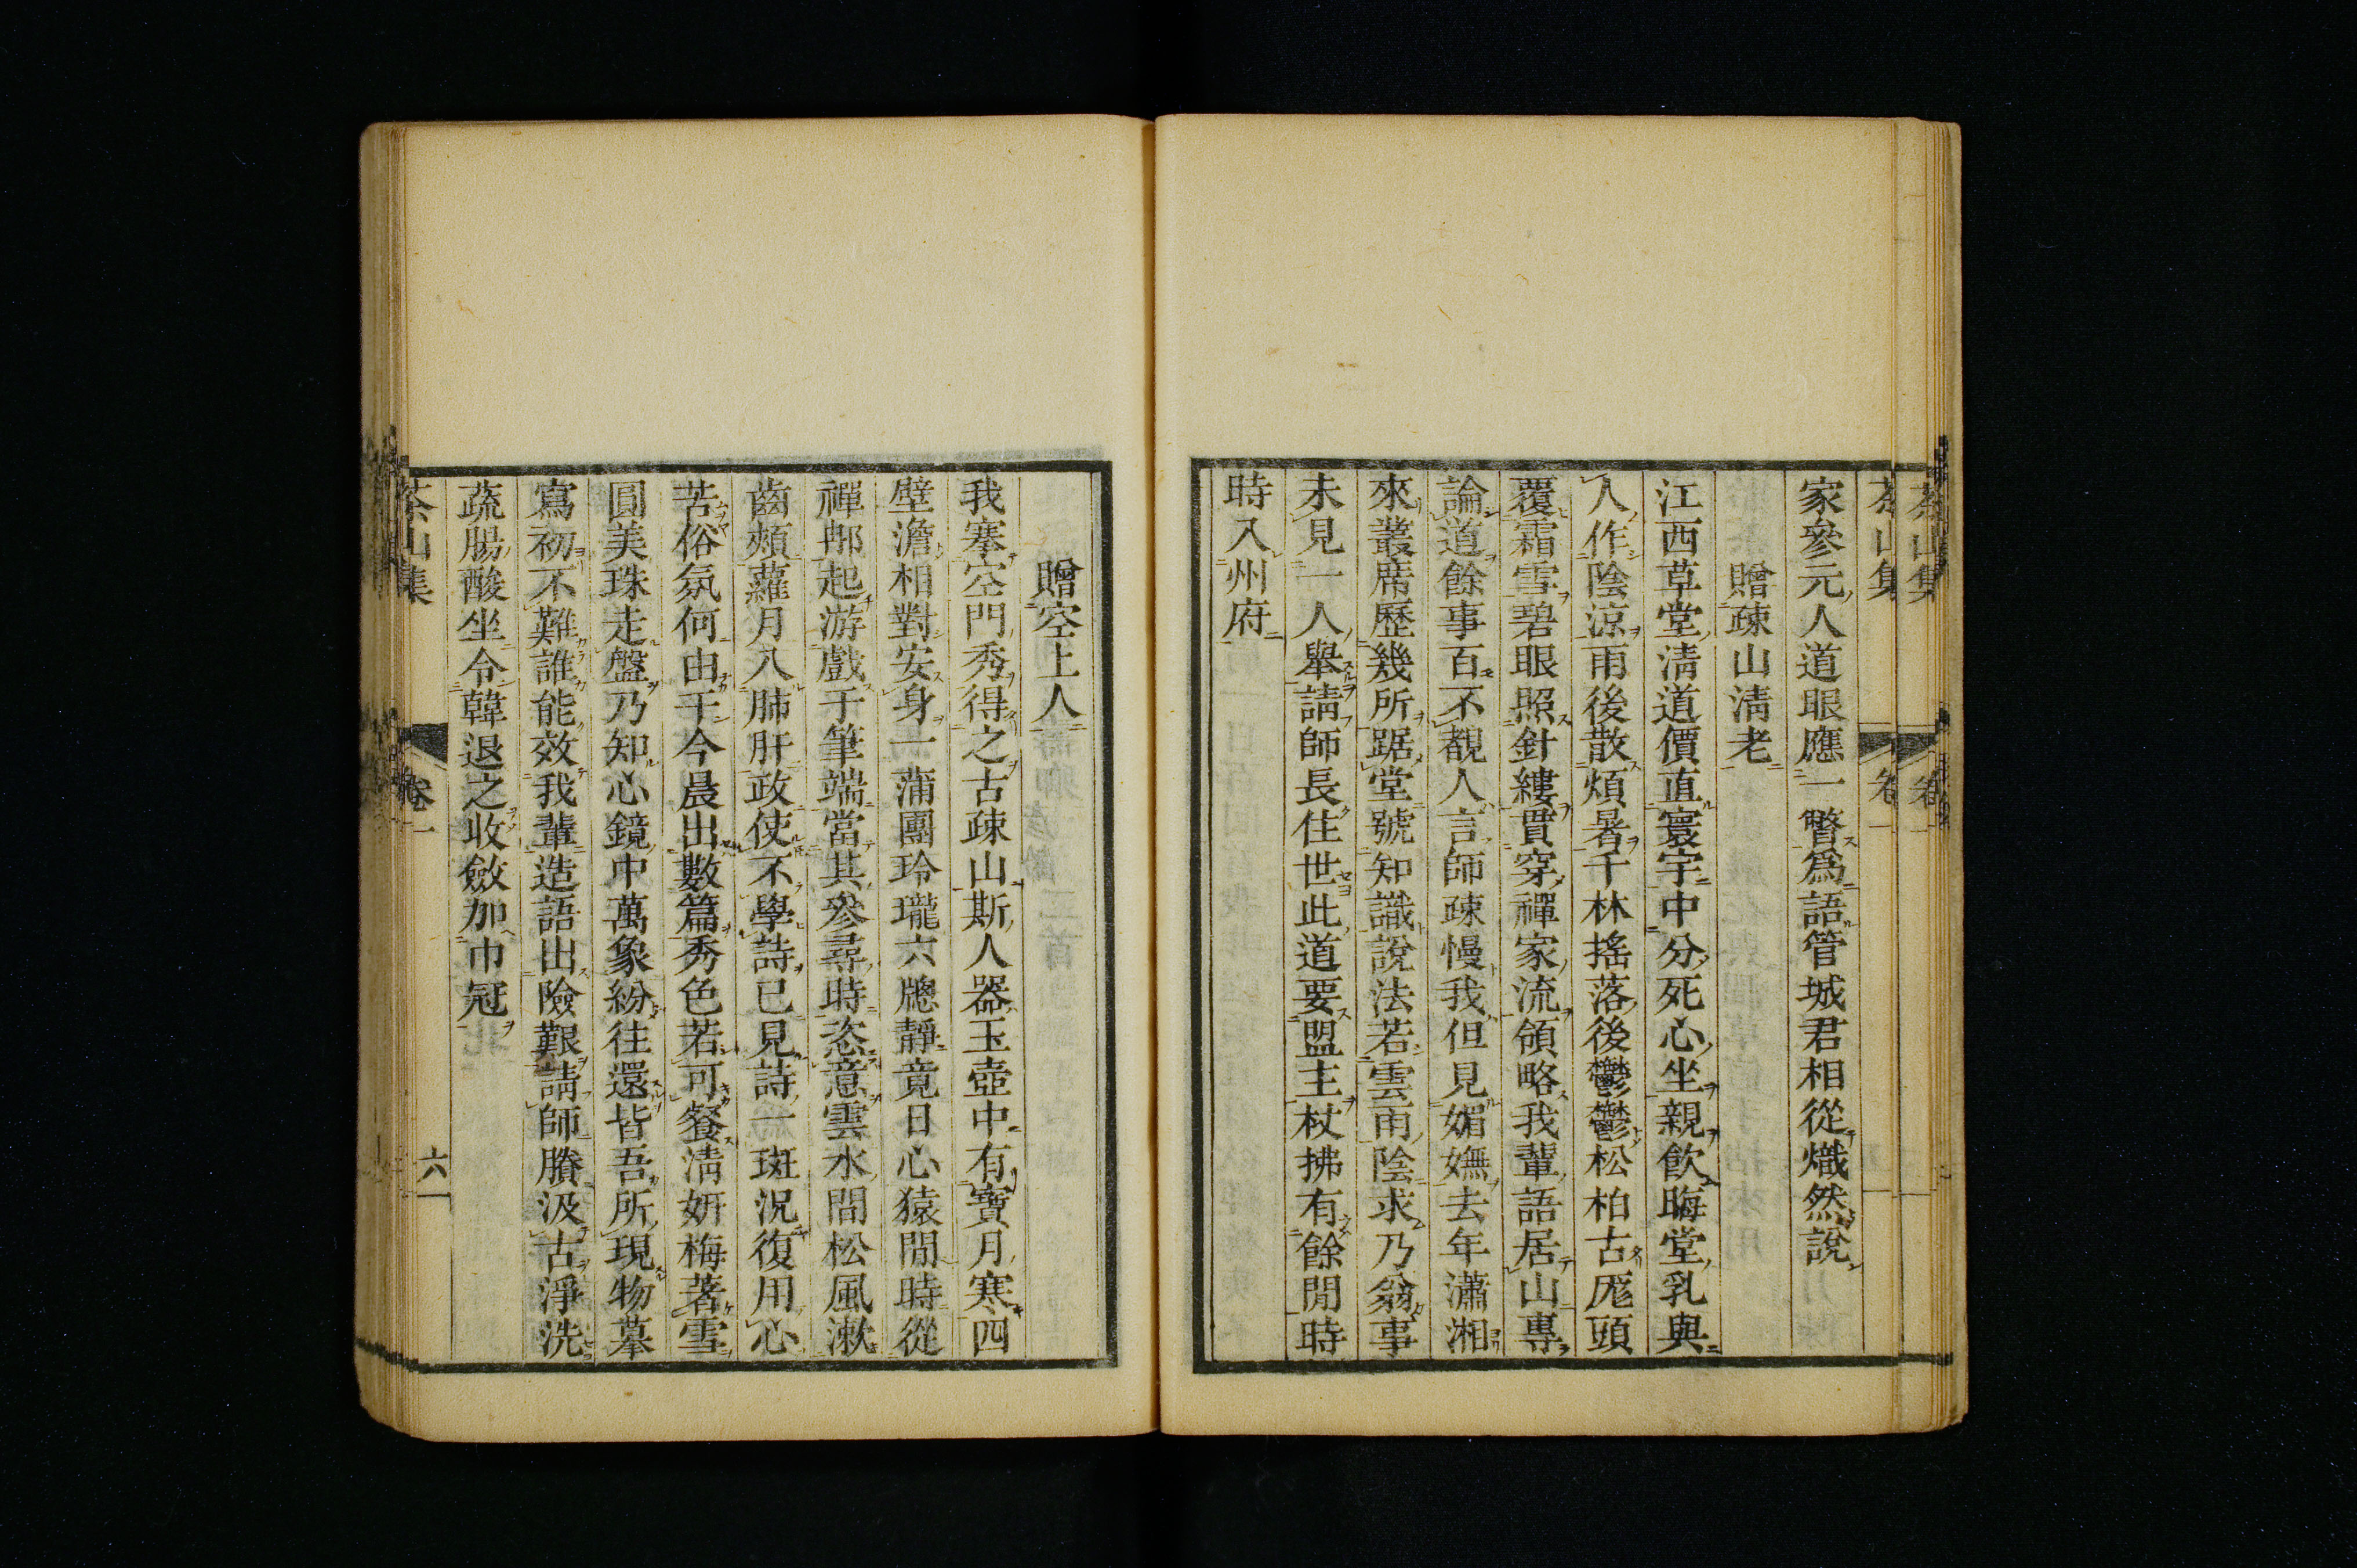 茶山集
卷一
家參元人道眼應一瞥爲語管城君相從熾然說
贈疎山淸老
江西草堂淸道價直寰宇中分死心坐親飮晦堂乳與
人作陰涼雨後散煩暑千林搖落後鬱鬱松柏古厖頭
覆霜雪碧眼照針縷貫穿禪家流領略我輩語居山專
論道餘事百不覩人言師疎慢我但見媚嫵去年瀟湘
來叢席歷幾所踞堂號知識說法若雲雨陰求乃翁事
未見一人舉請師長住世此道要盟主杖拂有餘閒時
時入州府
贈空上人
我塞空門秀得之古疎山斯人器玉壺中有寶月寒四
壁澹相對安身一蒲團玲瓏六牕靜竟日心猿閒時從
禪那起游戲于筆端當其參尋時恣意雲水間松風漱
齒頰蘿月入肺肝政使不學詩已見詩一斑況復用心
苦俗氛何由干今晨出數篇秀色若可餐淸姸梅著雪
圓美珠走盤乃知心鏡中萬象紛往還皆吾所現物摹
寫初不難誰能效我輩造語出險艱請師賸汲古淨洗
蔬腸酸坐令韓退之收斂加巾冠
茶山集
卷一
六